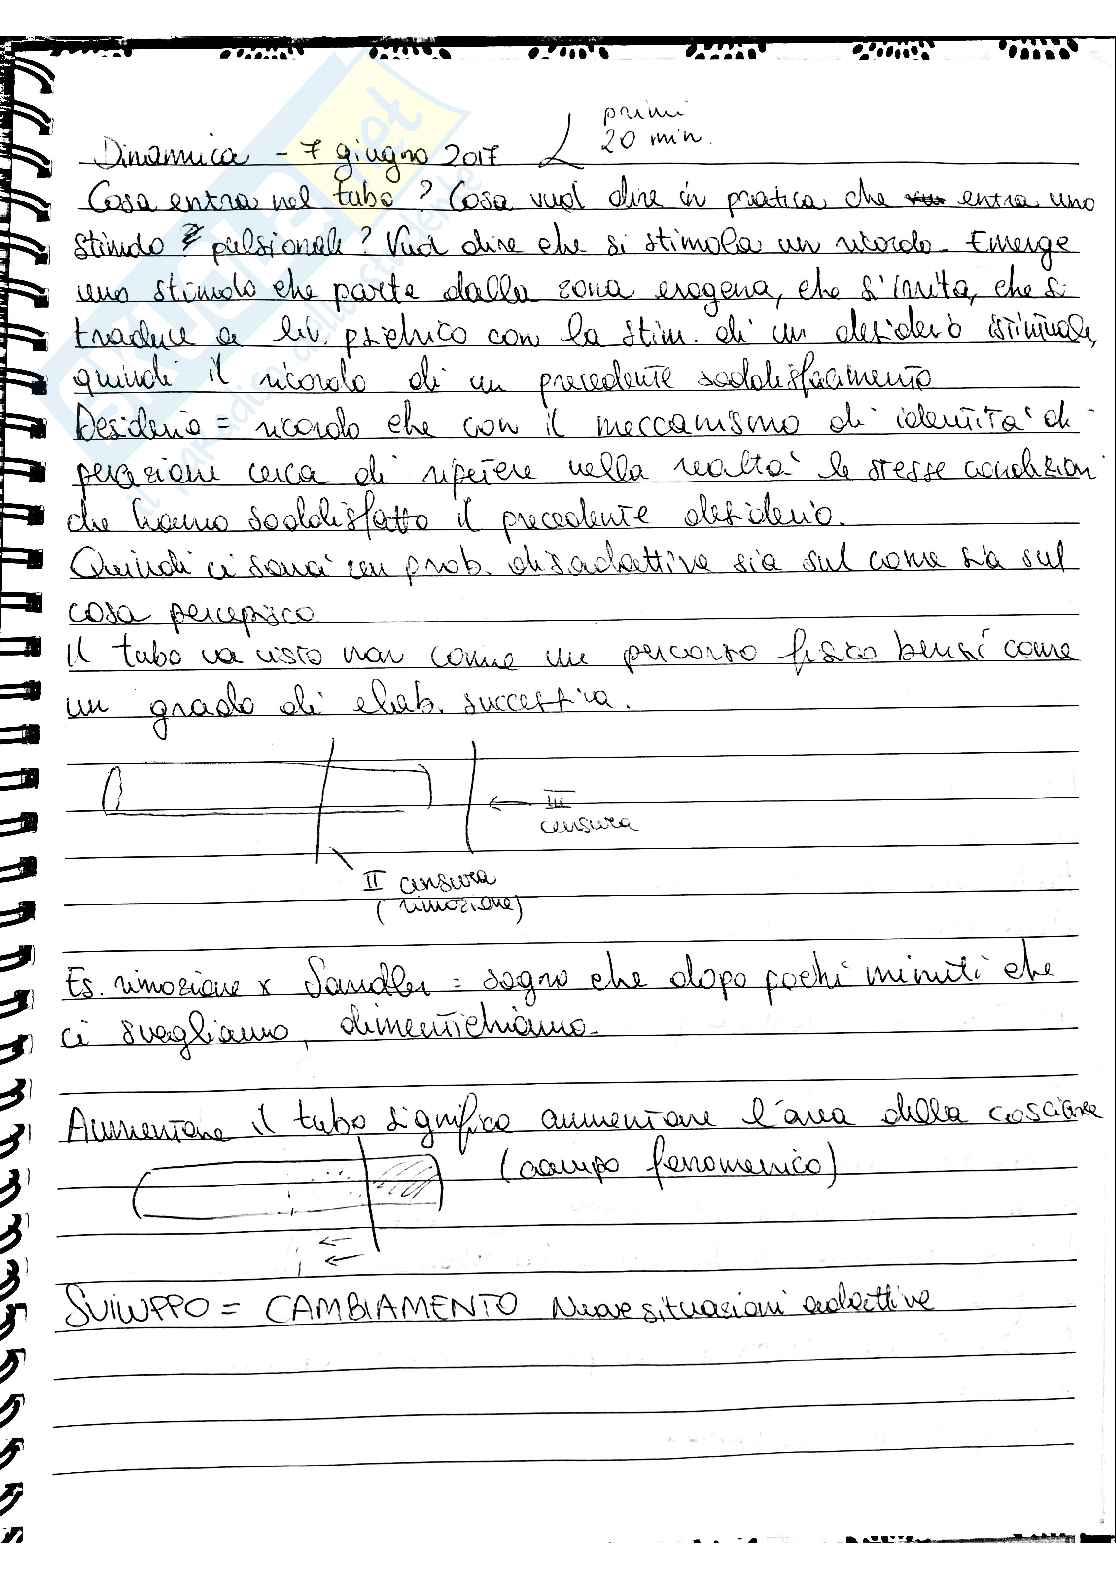 primi
20 min.
Dinamica - 7 giugno 2017
Cosa entra nel tubo? Cosa vuol dire in pratica che entra uno
stimolo pulsionale? Vuol dire che si stimola un ricordo. Emerge
uno stimolo che parte dalla zona erogena, che s'irrita, che si
traduce a liv. psichico con la stim. di un desiderio istintuale,
quindi il ricordo di un precedente soddisfacimento
Desiderio = ricordo che con il meccanismo di identità di
percezione cerca di ripetere nella realtà le stesse condizioni
che hanno soddisfatto il precedente desiderio.
Quindi ci sono prob. disadattive sia sul come sia sul
cosa percepisco
Il tubo va visto non come un percorso fisico bensì come
un grado di elab. successiva.
III
censura
II censura
(rimozione)
Es. rimozione x Sandler = sogno che dopo pochi minuti che
ci svegliamo, dimentichiamo.
Aumentare il tubo significa aumentare l'area della
(campo fenomenico)
SVILUPPO = CAMBIAMENTO Nuove situazioni adattive